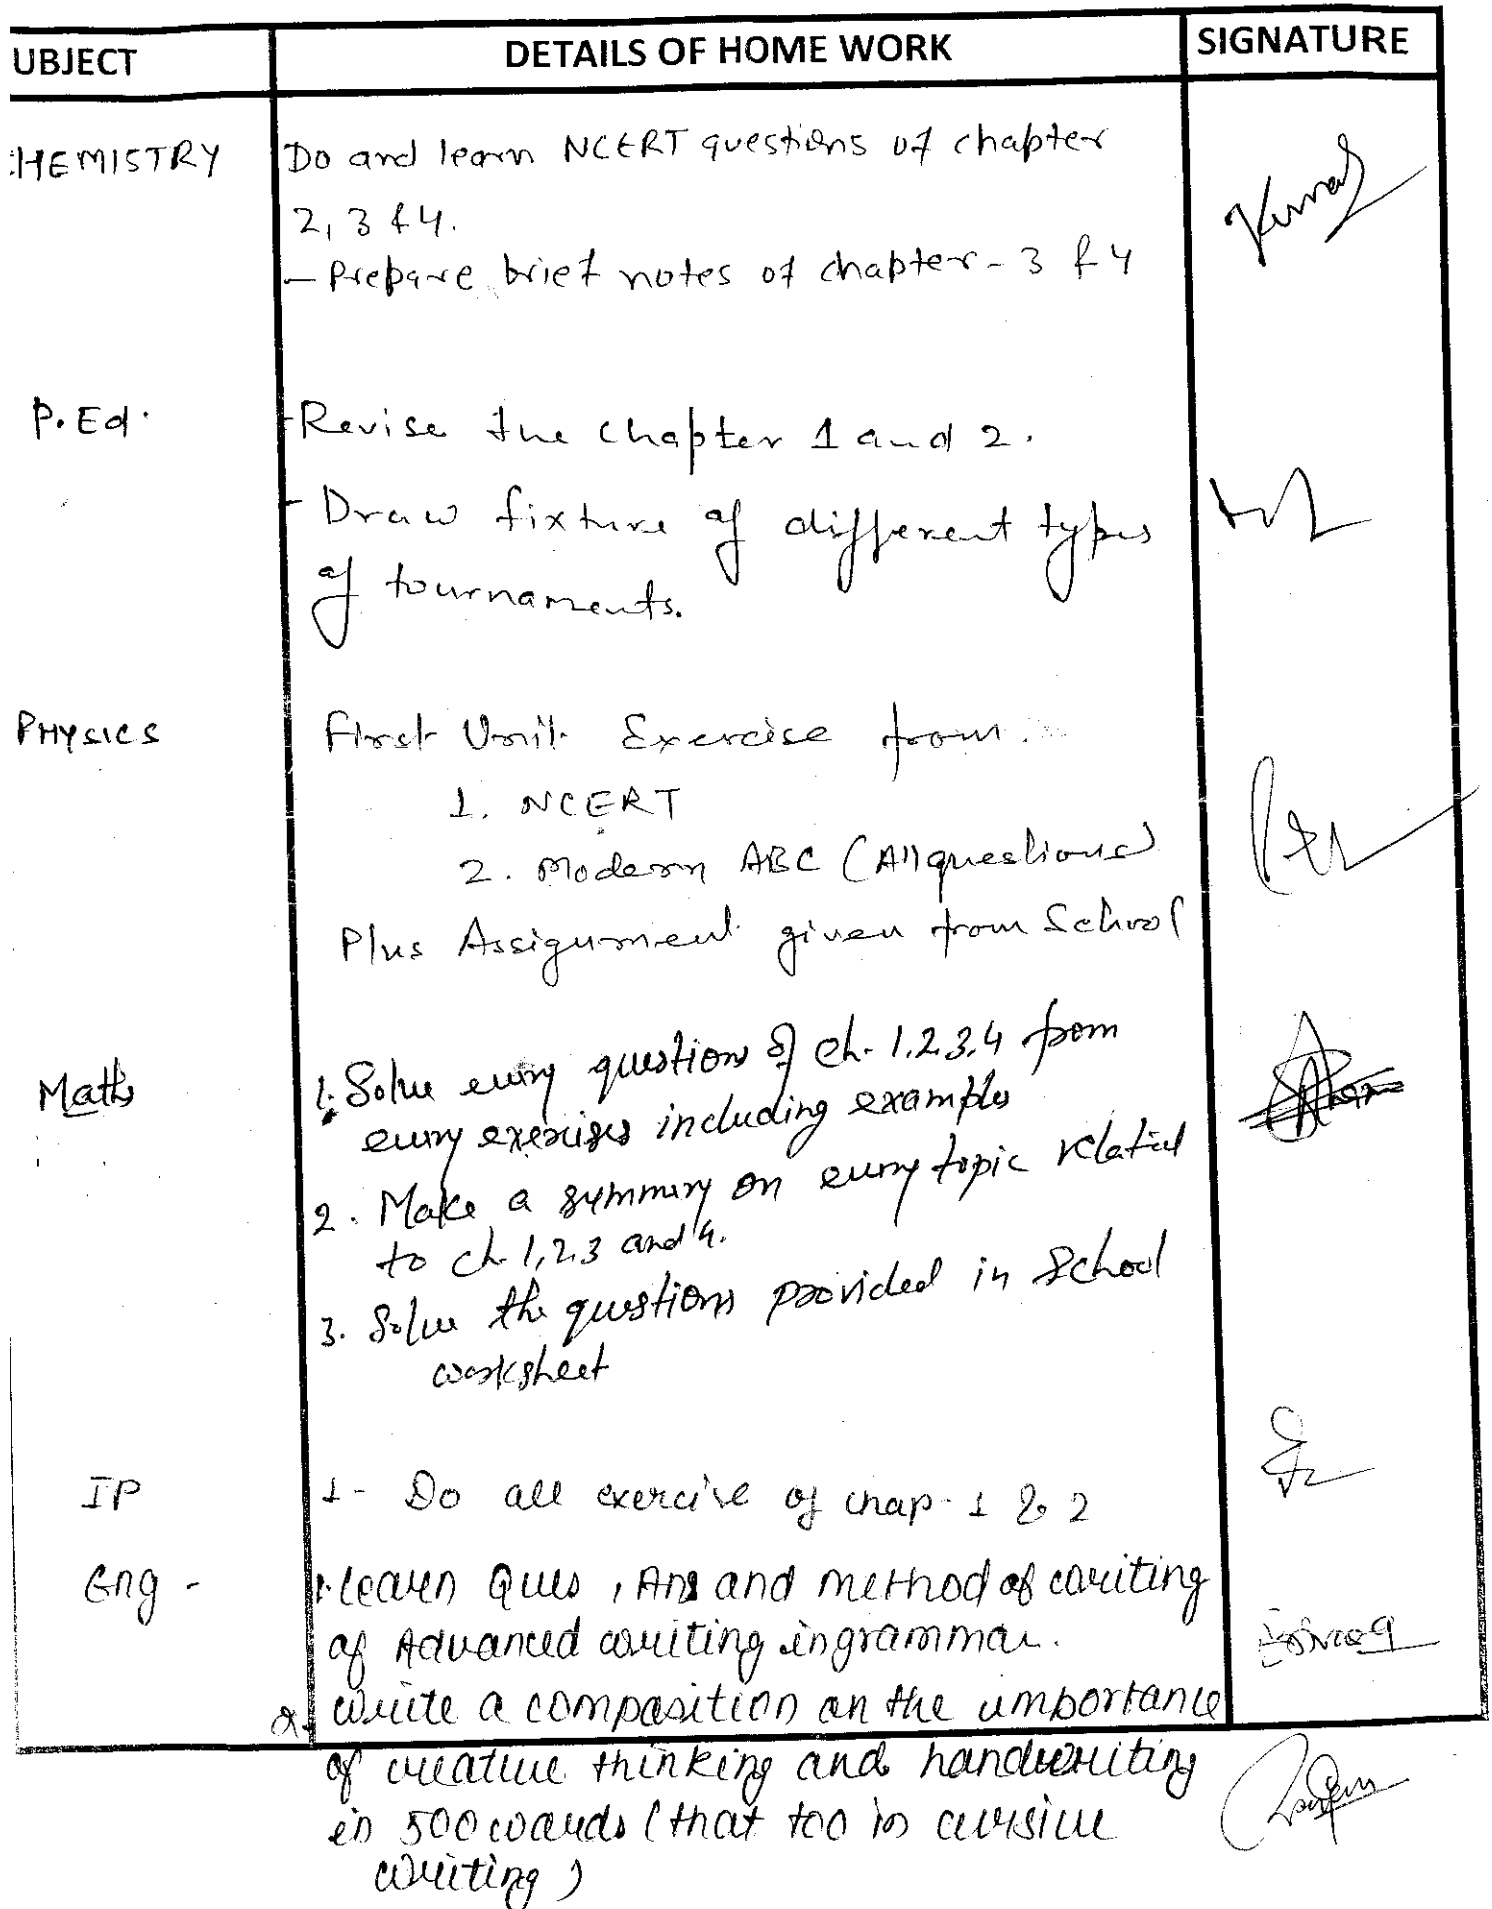 UBJECT DETAILS OF HOME WORK SIGNATURE
CHEMISTRY Do and learn NCERT questions of chapter
2, 3 & 4.
- Prepare brief notes of chapter - 3 & 4
Kumar
P. Ed. - Revise the chapter 1 and 2.
- Draw fixture of different types
of tournaments.
PHYSICS First Unit Exercise from
1. NCERT
2. Modern ABC (All questions)
Plus Assignment given from School
Maths 1. Solve every question of ch. 1,2,3,4 from
every exercises including examples
2. Make a summary on every topic related
to ch. 1,2,3 and 4.
3. Solve the questions provided in School
worksheet
IP 1- Do all exercise of chap. 1 & 2
Eng - 1. learn Ques, Ans and method of writing
of Advanced writing in grammar.
2. write a composition on the importance
of creative thinking and handwriting
in 500 words (that too in cursive
writing)